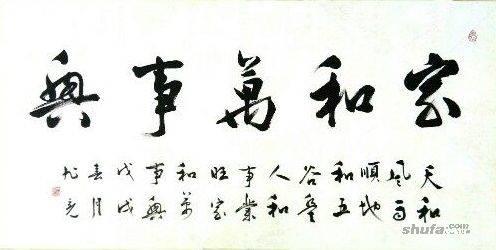 家和萬事興
天和
风雨
順地
和五
谷登
人和
事業
旺家
和萬
事興
戊戌
春月
shufa.com